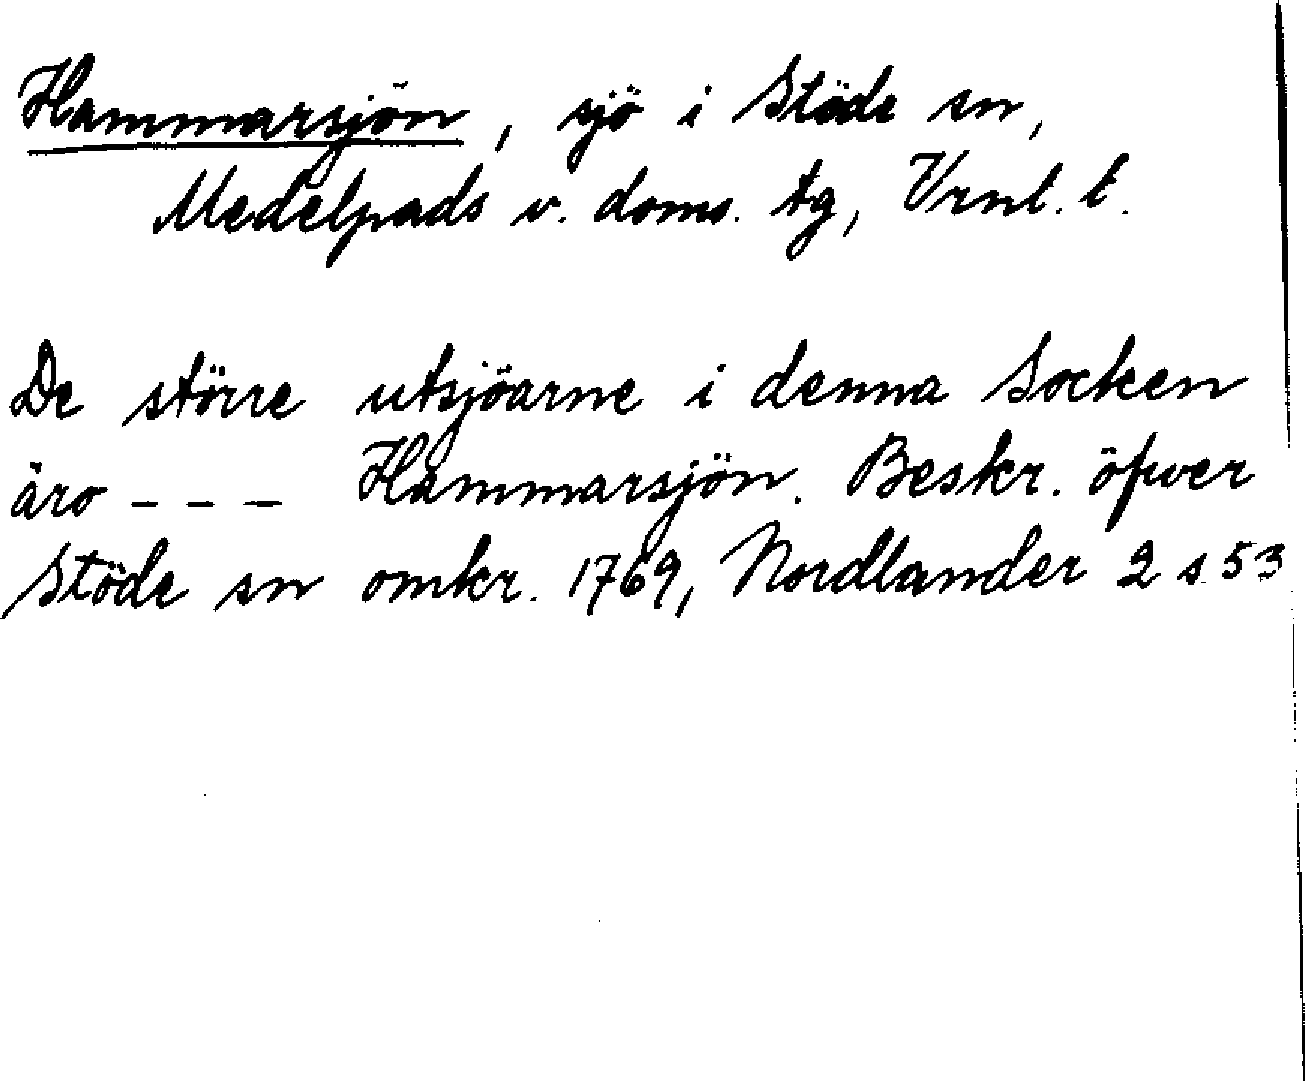 Hammarsjön, sjö i Stöde sn,
Medelpads v. doms. tg, Vrnl. l.
De större utsjöarne i denna Socken
äro - - - Hammarsjön. Beskr. öfver
Stöde sn omkr. 1769, Nordlander 2 s 53